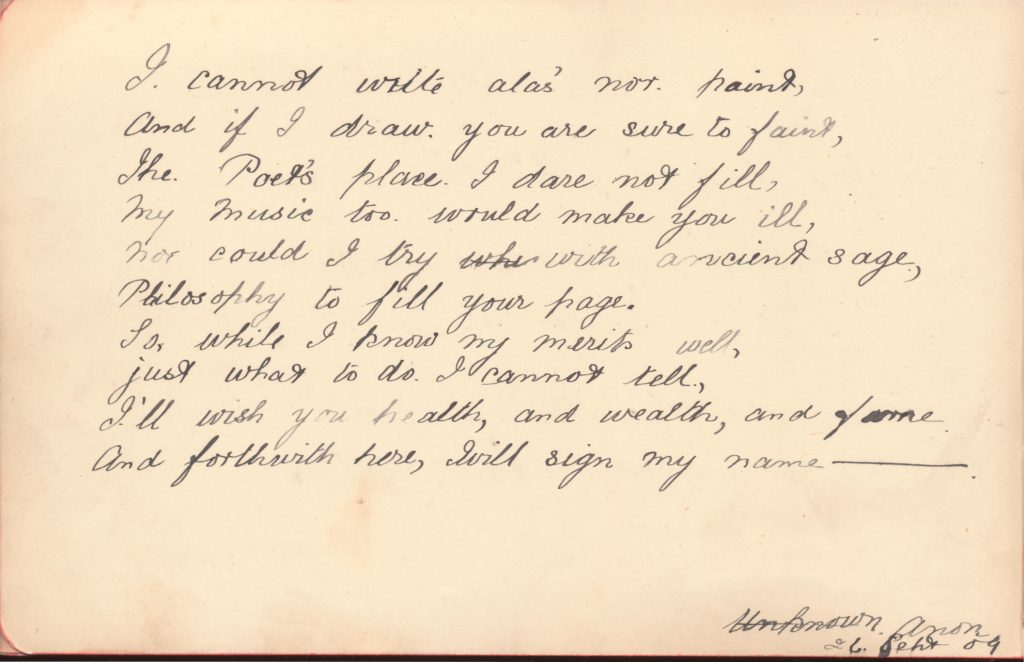 I. cannot write alas' nor. paint,
And if I draw. you are sure to faint,
The. Poet's place. I dare not fill,
My music too. would make you ill,
Nor could I try whe with ancient sage,
Philosophy to fill your page.
So, while I know my merits well,
just what to do. I cannot tell.,
I'll wish you health, and wealth, and fame.
And forthwith here, I will sign my name ———.
Unknown. Anon
26. Sept 09